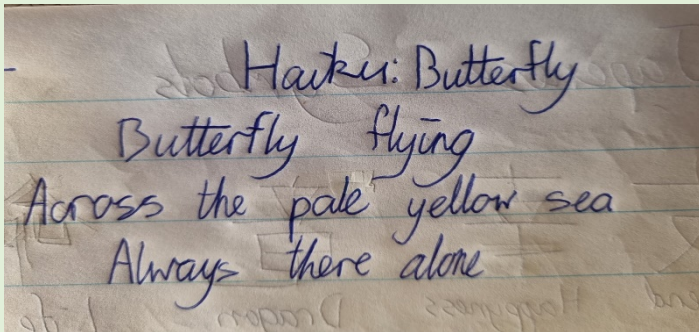 Haiku: Butterfly
Butterfly flying
Across the pale yellow sea
Always there alone